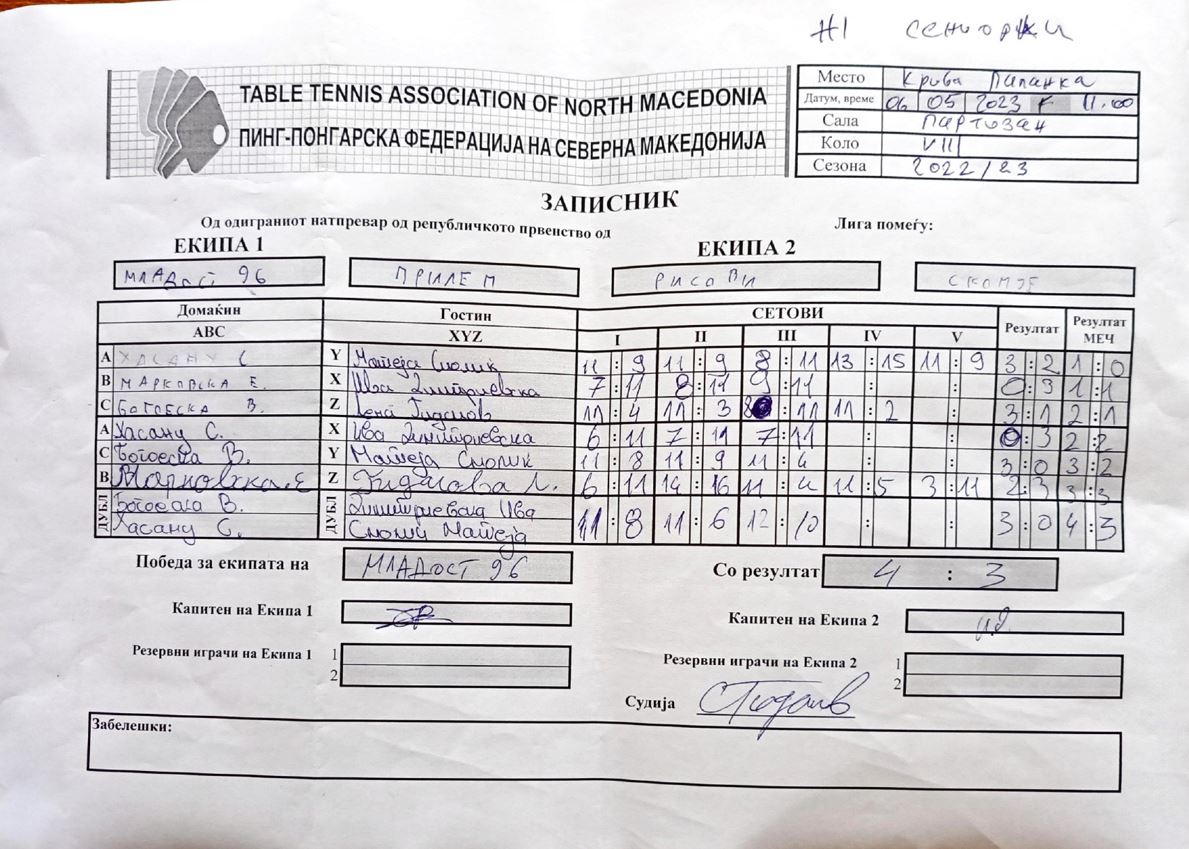 #1 сениорки
TABLE TENNIS ASSOCIATION OF NORTH MACEDONIA
ПИНГ-ПОНГАРСКА ФЕДЕРАЦИЈА НА СЕВЕРНА МАКЕДОНИЈА
Место Крива Паланка
Датум, време 06 05 2023 г 11.00
Сала Партизан
Коло VIII
Сезона 2022/23
ЗАПИСНИК
Од одиграниот натпревар од републичкото првенство од Лига помеѓу:
ЕКИПА 1 ЕКИПА 2
МЛАДОСТ 96 ПРИЛЕП РИСОВИ СКОПЈЕ
Домаќин Гостин СЕТОВИ Резултат Резултат МЕЧ
ABC XYZ I II III IV V
A ХАСАНУ С Y Матеја Смолиќ 11:9 11:9 8:11 13:15 11:9 3:2 1:0
B МАРКОВСКА Е. X Ива Димитриевска 7:11 8:11 9:11 : : 0:3 1:1
C БОГОЕСКА В. Z 11:4 11:3 8:11 11:2 : 3:1 2:1
A Хасану С. X Ива Димитриевска 6:11 7:11 7:11 : : 0:3 2:2
C Богоеска В. Y Матеја Смолиќ 11:8 11:9 11:4 : : 3:0 3:2
B Марковска.Е Z Гидасова Л. 6:11 14:16 11:4 11:5 3:11 2:3 3:3
ДУБЛ Богоеска В. ДУБЛ Димитриевска Ива 11:8 11:6 12:10 : : 3:0 4:3
Хасану С. Смолиќ Матеја
Победа за екипата на МЛАДОСТ 96 Со резултат 4 : 3
Капитен на Екипа 1 Капитен на Екипа 2
Резервни играчи на Екипа 1 1 Резервни играчи на Екипа 2 1
2 2
Судија
Забелешки: